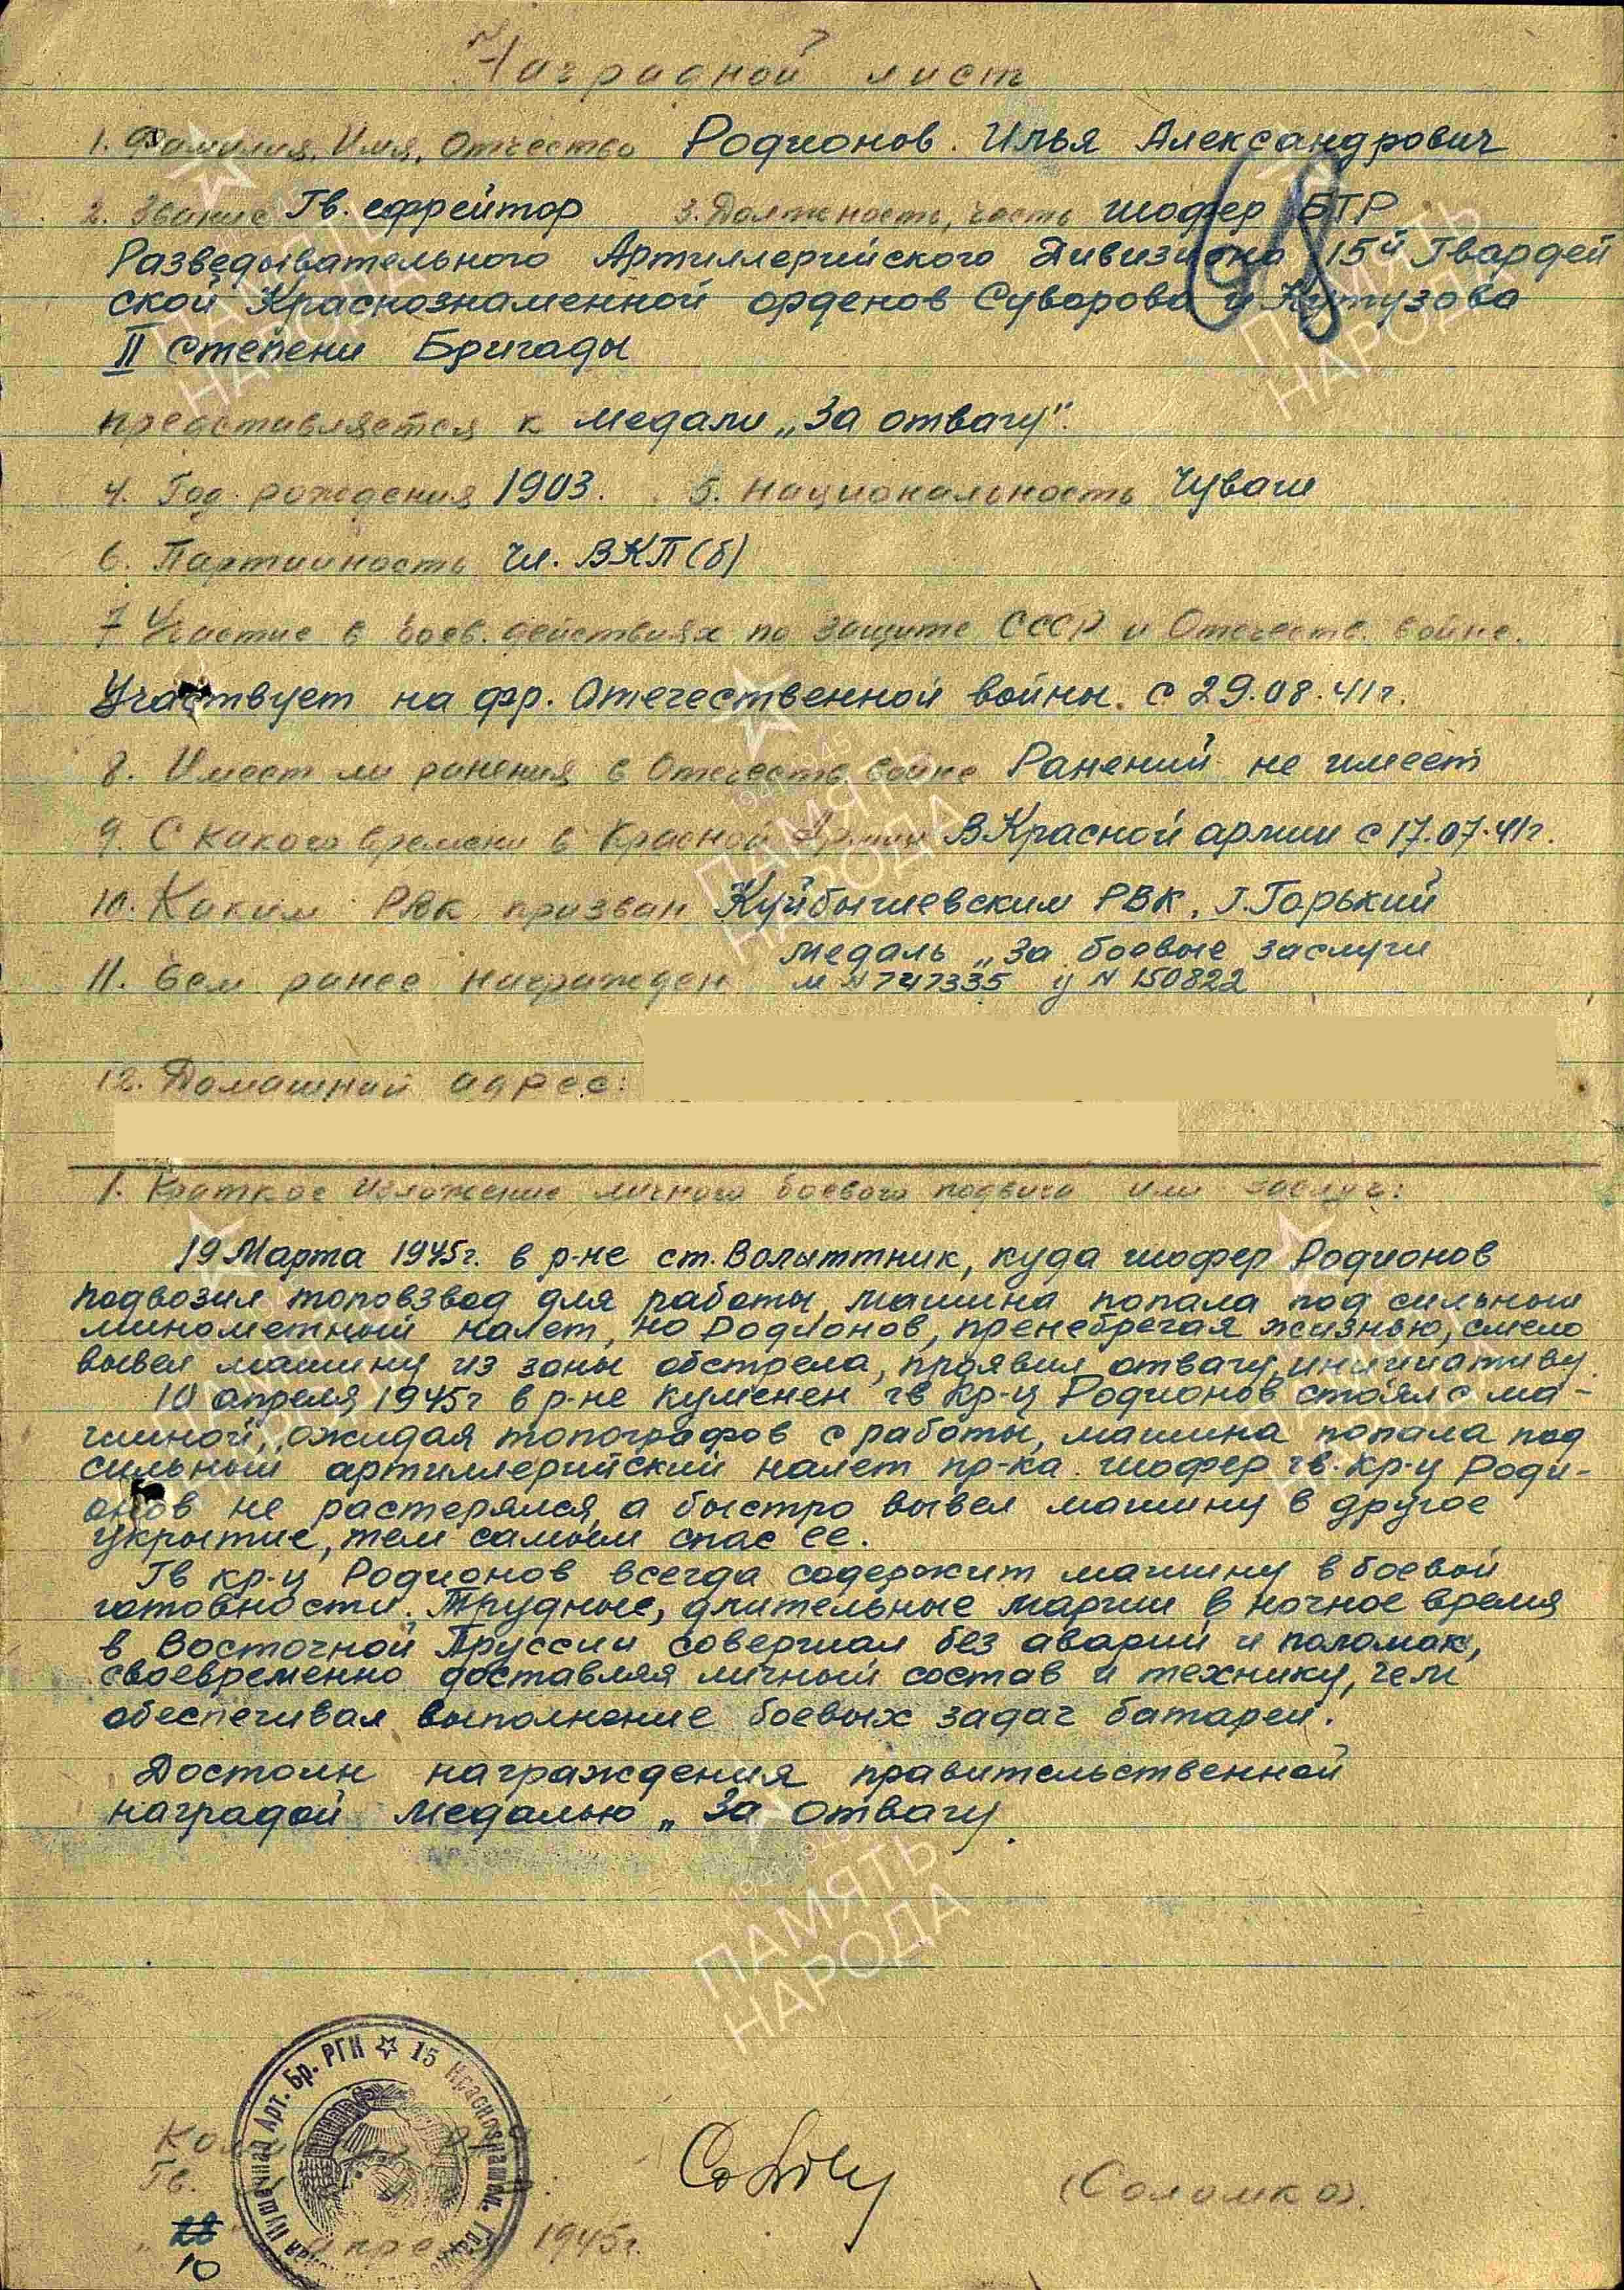 Наградной лист
1. Фамилия, Имя, Отчество Родионов. Илья Александрович
2. Звание Гв. ефрейтор 3. Должность, часть шофер БТР
Разведывательного Артиллерийского Дивизиона 15й Гвардей
ской Краснознаменной орденов Суворова и Кутузова
II степени Бригады
68
представляется к медали „За отвагу".
4. Год рождения 1903. 5. Национальность Чуваш
6. Партийность Чл. ВКП(б)
7 Участие в боев. действиях по защите СССР и Отечеств. войне.
Участвует на фр. Отечественной войны. с 29.08.41г.
8. Имеет ли ранения в Отечеств. войне Ранений не имеет
9. С какого времени в Красной Армии В Красной армии с 17.07.41г.
10. Каким РВК призван Куйбышевским РВК, г. Горький
медаль „За боевые заслуги
11. Чем ранее награжден м N 747335 у N 150822
12. Домашний адрес:
1. Краткое изложение личного боевого подвига или заслуг:
19 Марта 1945г. в р-не ст. Волыттник, куда шофер Родионов
подвозил топовзвод для работы, машина попала под сильный
минометный налет, но Родионов, пренебрегая жизнью, смело
вывел машину из зоны обстрела, проявил отвагу, инициативу.
10 апреля 1945г в р-не Куменен гв кр-ц Родионов стоял с ма-
шиной, ожидая топографов с работы, машина попала под
сильный артиллерийский налет пр-ка. шофер гв. кр-ц Роди-
онов не растерялся, а быстро вывел машину в другое
укрытие, тем самым спас ее.
Гв кр-ц Родионов всегда содержит машину в боевой
готовности. Трудные, длительные марши в ночное время
в Восточной Пруссии совершал без аварий и поломок,
своевременно доставляя личный состав и технику, чем
обеспечивал выполнение боевых задач батареи.
Достоин награждения правительственной
наградой медалью „За отвагу.
Пушечная Арт. Бр. РГК ☆ 15 Краснознамен.
Гв.
(Соломко).
28
10 апреля 1945г.
ПАМЯТЬ
НАРОДА